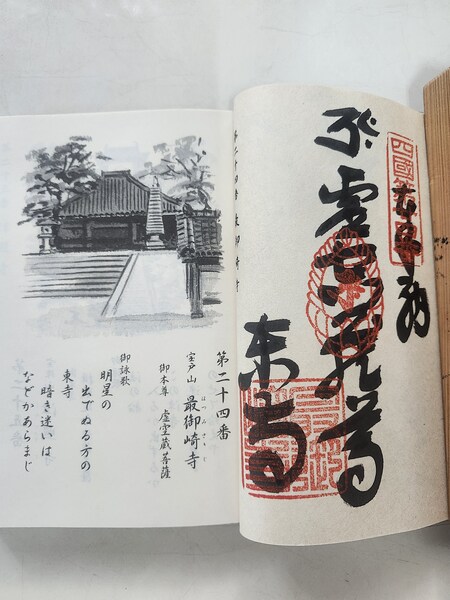 第二十四番
室戸山 最御崎寺
ほつみさきじ
御本尊 虚空蔵菩薩
御詠歌
明星の
出でぬる方の
東寺
暗き迷いは
などかあらまじ
第二十四番 最御崎寺
奉
虚空蔵
東寺